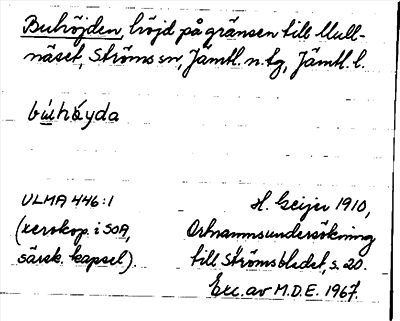 Buhöjden, höjd på gränsen till Mull-
näset, Ströms sn, Jämtl. n. tg, Jämtl. l.
búhǻyda
ULMA 446:1
(xerokop. i SOA,
särsk. kapsel).
H. Geijer 1910,
Ortnamnsundersökning
till Strömsbladet, s. 20.
Exc. av M.D.E. 1967.